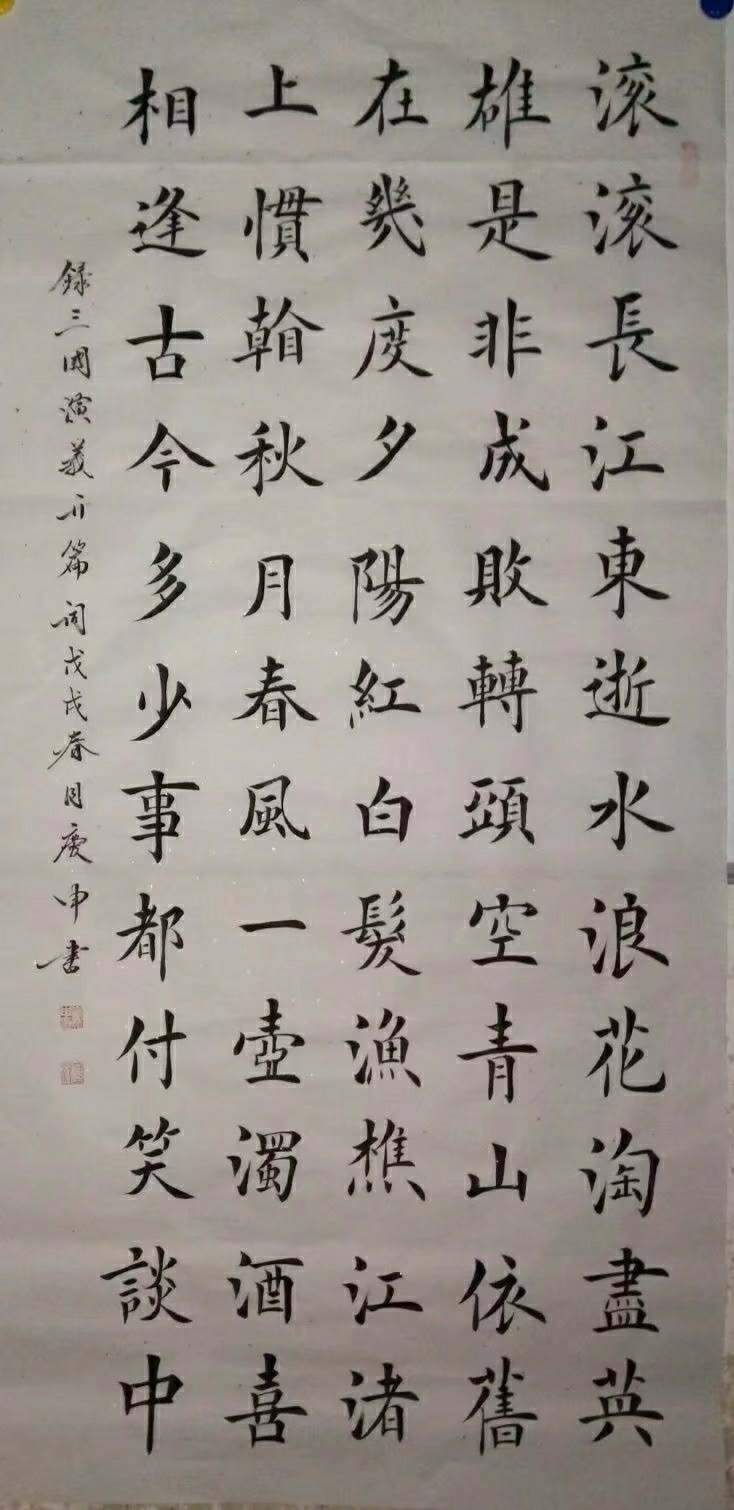 滚滚長江東逝水浪花淘盡英
雄是非成敗轉頭空青山依舊
在幾度夕陽紅白髮漁樵江渚
上慣看秋月春風一壺濁酒喜
相逢古今多少事都付笑談中
録三國演義開篇詞戊戌春月慶申书